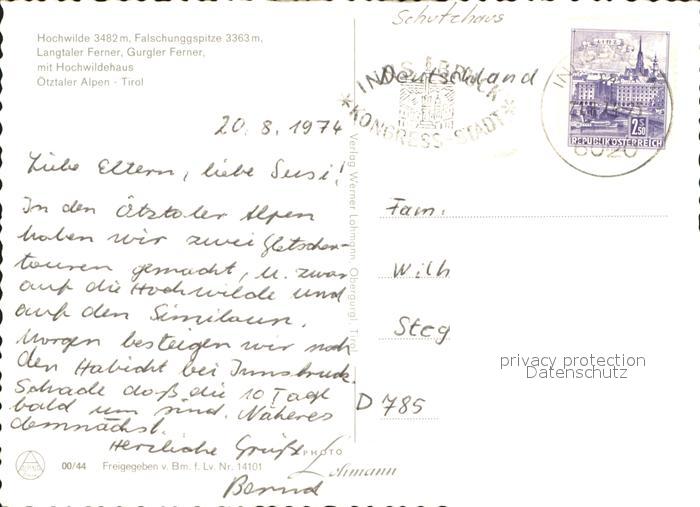 Hochwilde 3482 m, Falschunggspitze 3363 m,
Langtaler Ferner, Gurgler Ferner,
mit Hochwildehaus
Ötztaler Alpen - Tirol
20.8.1974
Liebe Eltern, liebe Susi!
In den Ötztaler Alpen
haben wir zwei Gletscher-
touren gemacht, u. zwar
auf die Hochwilde und
auf den Similaun.
Morgen besteigen wir noch
den Habicht bei Innsbruck.
Schade daß die 10 Tage
bald um sind. Näheres
demnächst.
Herzliche Grüße
Bernd
00/44 Freigegeben v. Bm. f. Lv. Nr. 14101
PHOTO
Lohmann
Verlag Werner Lohmann, Obergurgl, Tirol
Schutzhaus
Deutschland
INNSBRUCK
*KONGRESS-STADT*
6020
2.50
REPUBLIK ÖSTERREICH
Fam.
Wilh
Steg
D 785
privacy protection
Datenschutz